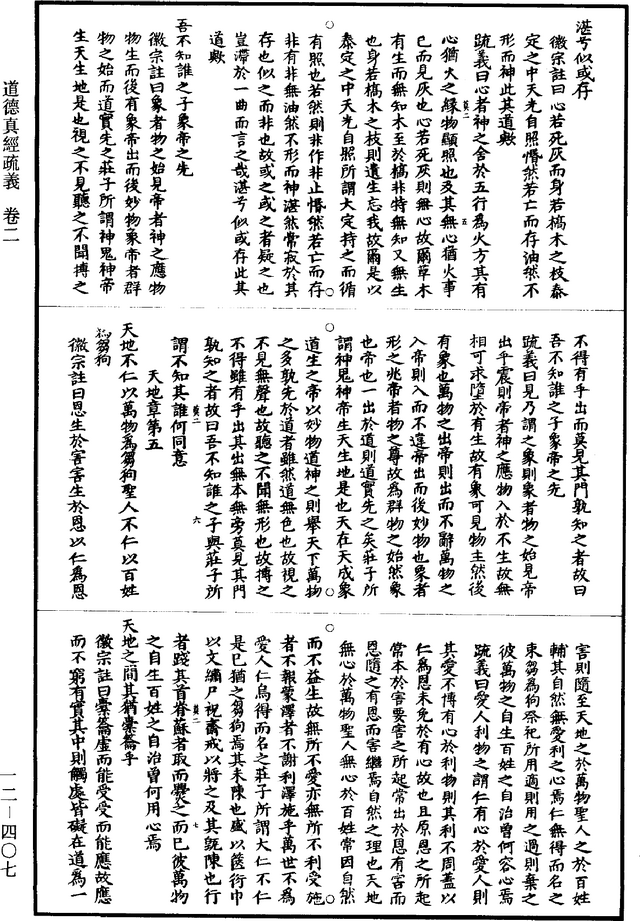 湛兮似或存
徽宗註曰心若死灰而身若槁木之枝泰
定之中天光自照惛然若亡而存油然不
形而神此其道歟
疏義曰心者神之舍於五行為火方其有
心猶火之緣物顯照也及其無心猶火事
已而見灰也心若死灰則無心故爾草木
有生而無知木至於槁非特無知又無生
也身若槁木之枝則遺生忘我故爾是以
泰定之中天光自照所謂大定持之而循
有照也若然則非作非止惛然若亡而存
非有非無油然不形而神湛然常寂於其
存也似之而非也故或之或之者疑之也
豈滯於一曲而言之哉湛兮似或存此其
道歟
吾不知誰之子象帝之先
徽宗註曰象者物之始見帝者神之應物
物生而後有象帝出而後妙物象帝者群
物之始而道實先之莊子所謂神鬼神帝
生天生地是也視之不見聽之不聞搏之
不得有乎出而莫見其門孰知之者故曰
吾不知誰之子象帝之先
疏義曰見乃謂之象則象者物之始見帝
出乎震則帝者神之應物入於不生故無
相可求墮於有生故有象可見物生然後
有象也萬物之出帝則出而不辭萬物之
入帝則入而不違帝出而後妙物也象者
形之兆帝者物之尊故為群物之始然象
也帝也一出於道則道實先之矣莊子所
謂神鬼神帝生天生地是也天在天成象
道生之帝以妙物道神之則舉天下萬物
之多孰先於道者雖然道無色也故視之
不見無聲也故聽之不聞無形也故搏之
不得雖有乎出其出無本無旁莫見其門
孰知之者故曰吾不知誰之子與莊子所
謂不知其誰何同意
天地章第五
天地不仁以萬物為芻狗聖人不仁以百姓
為芻狗
徽宗註曰恩生於害害生於恩以仁為恩
害則隨至天地之於萬物聖人之於百姓
輔其自然無愛利之心焉仁無得而名之
束芻為狗祭祀所用適則用之過則棄之
彼萬物之自生百姓之自治曾何容心焉
疏義曰愛人利物之謂仁有心於愛人則
其愛不博有心於利物則其利不周蓋以
仁為恩未免於有心故也且原恩之所起
常本於害要害之所起常出於恩有害而
恩隨之有恩而害繼焉自然之理也天地
無心於萬物聖人無心於百姓常因自然
而不益生故無所不愛亦無所不利受施
者不報蒙澤者不謝利澤施乎萬世不為
愛人仁烏得而名之莊子所謂大仁不仁
是已猶之芻狗焉其未陳也盛以篋衍巾
以文繡尸祝齋戒以將之及其既陳也行
者踐其首脊蘇者取而爨之而已彼萬物
之自生百姓之自治曾何用心焉
天地之間其猶橐籥乎
徽宗註曰橐籥虛而能受受而能應故應
而不窮有實其中則觸處皆礙在道為一
道德真經疏義　卷二
一二—四〇七